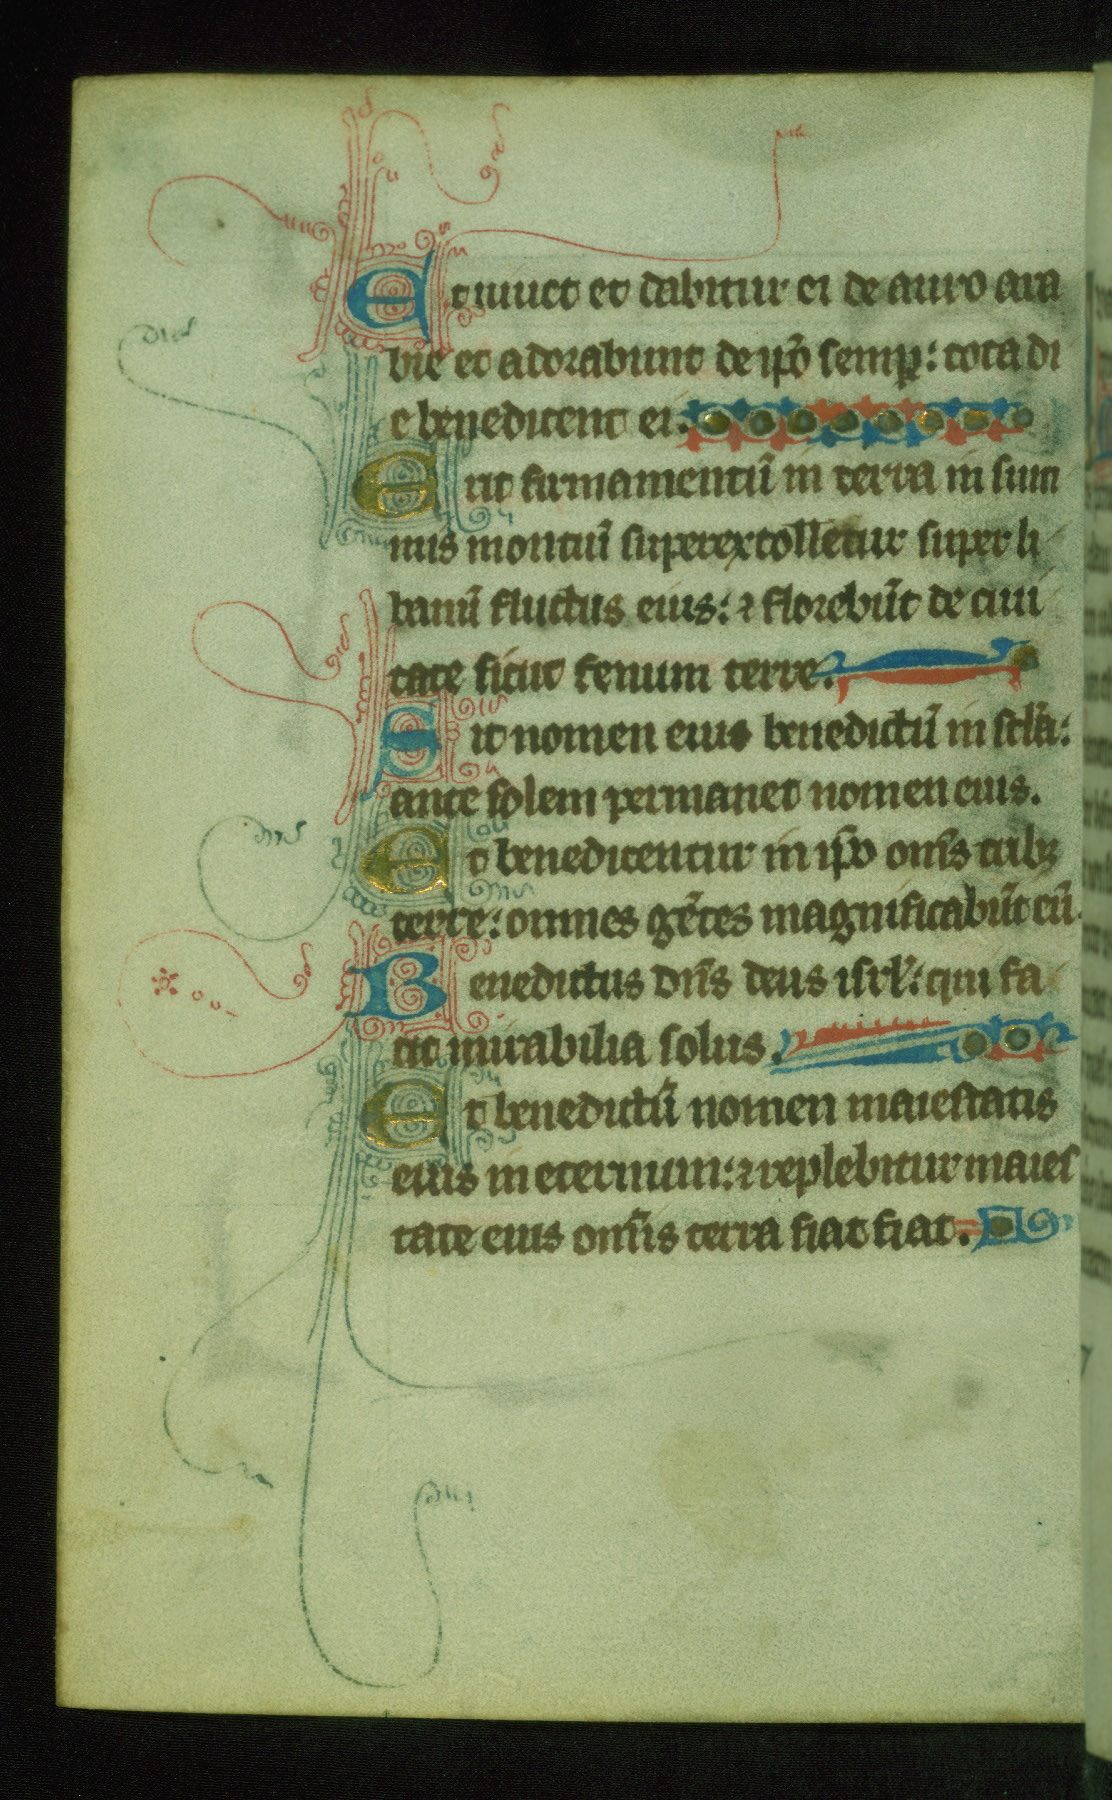 Et viuet et dabitur ei de auro ara
bie et adorabunt de ip̄o semꝑ: tota di
e benedicent ei.
Erit firmamentū in terra in sum
mis montiū superextolletur super li
banū fructus eius: ⁊ florebūt de ciui
tate sicut fenum terre.
Sit nomen eius benedictū in scl̄a:
ante solem permanet nomen eius.
Et benedicentur in ip̄o om̄s tribꝫ
terre: omnes gētes magnificabūt eū.
Benedictus dn̄s deus isrl̄: qui fa
cit mirabilia solus.
Et benedictū nomen maiestatis
eius in eternum: ⁊ replebitur maies
tate eius om̄is terra fiat fiat.